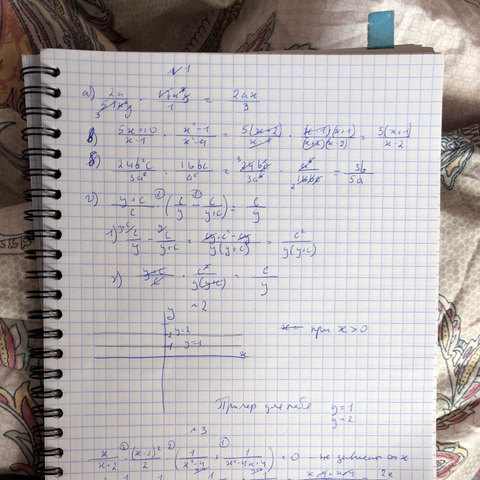 №1
а) 2a/51x⁴y · 17x⁵y/1 = 2ax/3
б) 5x+10/x-1 · x²-1/x²-4 = 5(x+2)/x-1 · (x-1)(x+1)/(x+2)(x-2) = 5(x+1)/x-2
в) 24b²c/3a⁶ : 16bc/a⁵ = 24b²c/3a⁶ · a⁵/16bc = 3b/5a
г) y+c/c · (c/y - c/y+c) = c/y
1) c/y - c/y+c = cy+c²-cy/y(y+c) = c²/y(y+c)
2) y+c/c · c²/y(y+c) = c/y
№2
y
2 y=2
1 y=1
x
при x>0
Пример для тебя y=1
y=2
№3
x/x+2 - (x-2)²/2 (1/x²-4 + 1/x²-4x+4) = 0 - не зависит от x